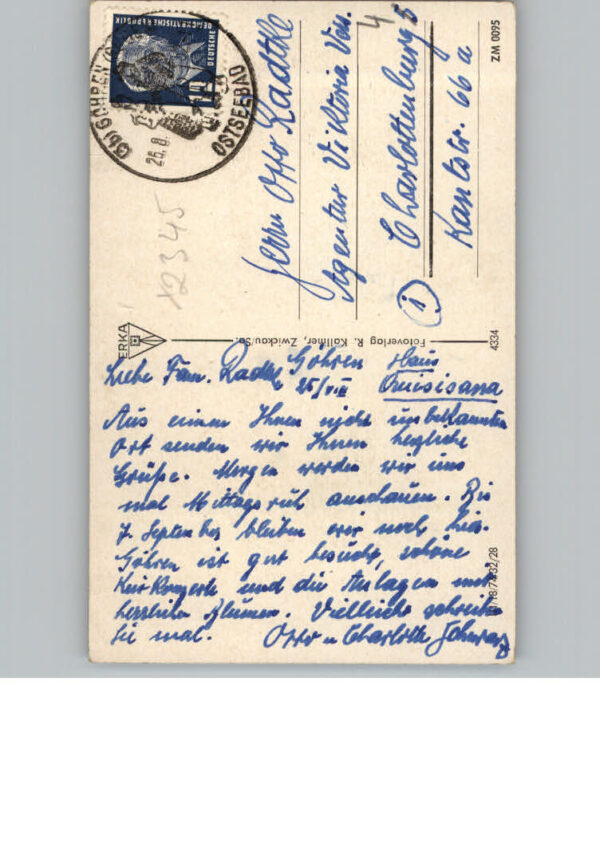 (3b) GÖHREN
OSTSEEBAD
26.8.
DEUTSCHE
DEMOKRATISCHE REPUBLIK
ZM 0095
12345
4
Herrn Otto Radtke
Agentur Viktoria Vers.
Charlottenburg 5
Kantstr. 66 a
ERKA
Fotoverlag R. Kallmer, Zwickau/Sa.
4334
Liebe Fam. Radtke
Göhren
25/VIII
Haus
Quisisana
Aus einem Ihnen nicht unbekannten
Ort senden wir Ihnen herzliche
Grüße. Morgen werden wir uns
mal Mittagsruh anschauen. Bis
7. September bleiben wir noch hier.
Göhren ist gut besucht, schöne
Kur-Konzerte und die Anlagen mit
herrlichen Blumen. Vielleicht schreiben
Sie mal. Otto u Charlotte